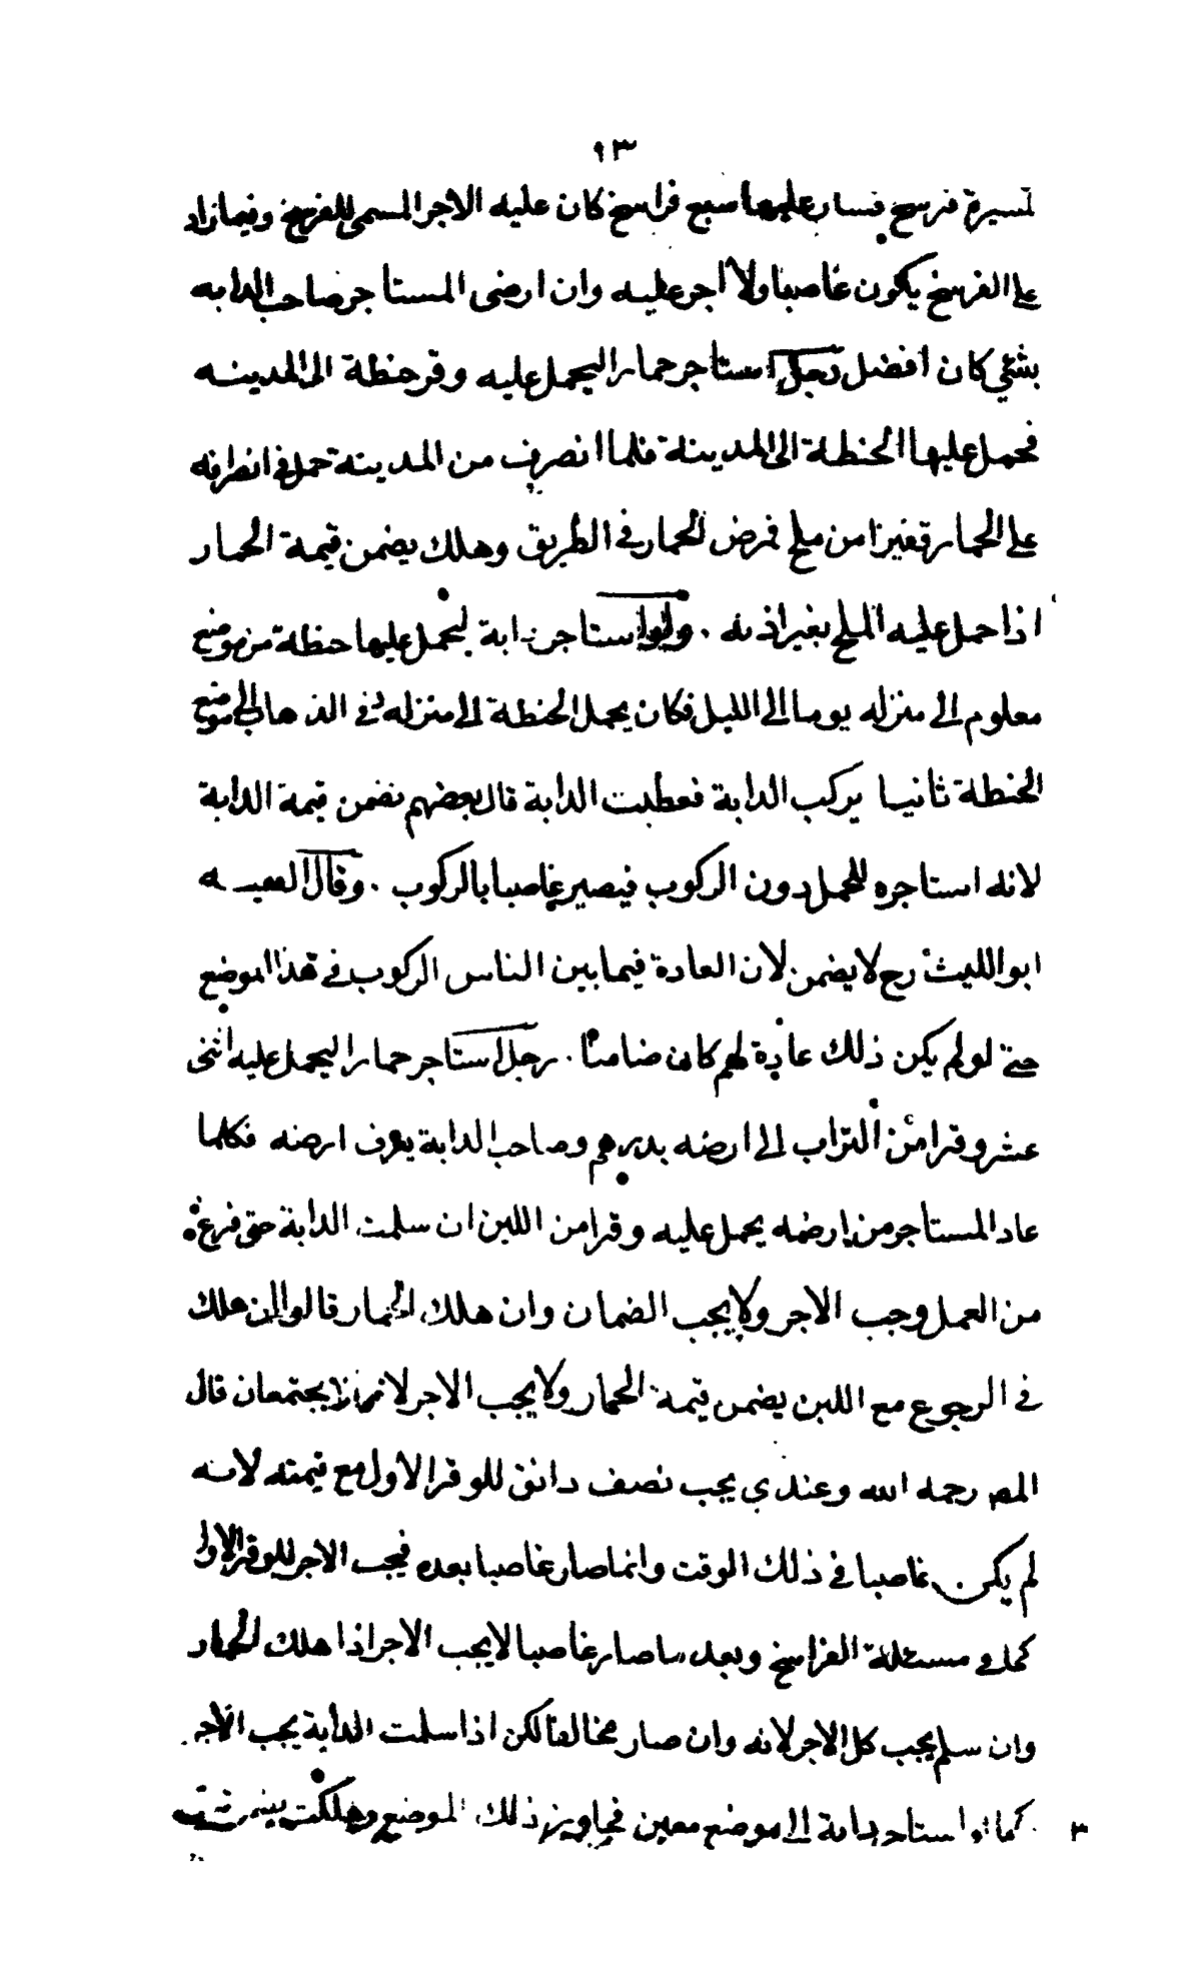 ٩٣
مسيرة فرسخ فسار عليها سبع فراسخ كان عليه الاجر المسمى للفرسخ وفيما زاد
على الفرسخ يكون غاصبا ولا اجر عليه وان ارضى المستاجر صاحب الدابه
بشئي كان افضل رجل استاجر حمارا ليحمل عليه وقر حنطة الى المدينه
فحمل عليها الحنطة الى المدينة فلما انصرف من المدينة حمل في انصرافه
على الحمار قفيزا من ملح فمرض الحمار في الطريق وهلك يضمن قيمة الحمار
اذا حمل عليه الملح بغير اذنه . ولو استاجر دابة ليحمل عليها حنطة من موضع
معلوم الى منزله يوما الى الليل فكان يحمل الحنطة الى منزله في الذهاب الى موضع
الحنطة ثانيا يركب الدابة فعطبت الدابة قال بعضهم يضمن قيمة الدابة
لانه استاجره للحمل دون الركوب فيصير غاصبا بالركوب . وقال الفقيه
ابو الليث رح لا يضمن لان العادة فيما بين الناس الركوب في هذا الموضع
حتى لو لم يكن ذلك عادة لهم كان ضامنا . رجل استاجر حمارا ليحمل عليه اثنى
عشر وقرا من التراب الى ارضه بدرهم وصاحب الدابة يعرف ارضه فكلما
عاد المستأجر من ارضه يحمل عليه وقرا من اللبن ان سلمت الدابة حتى فرغ
من العمل وجب الاجر ولا يجب الضمان وان هلك الحمار قالوا ان هلك
في الرجوع مع اللبن يضمن قيمة الحمار ولا يجب الاجر لانهما لا يجتمعان قال
المص رحمه الله وعندي يجب نصف دانق للوقر الاول مع قيمته لانه
لم يكن غاصبا في ذلك الوقت وانما صار غاصبا بعده فيجب الاجر للوقر الاول
كما في مسئلة الفراسخ وبعد ما صار غاصبا لا يجب الاجر اذا هلك الحمار
وان سلم يجب كل الاجر لانه وان صار مخالفا لكن اذا سلمت الدابة يجب الاجر
كما لو استاجر دابة الى موضع معين فجاوز ذلك الموضع وهلكت يضمن
٣